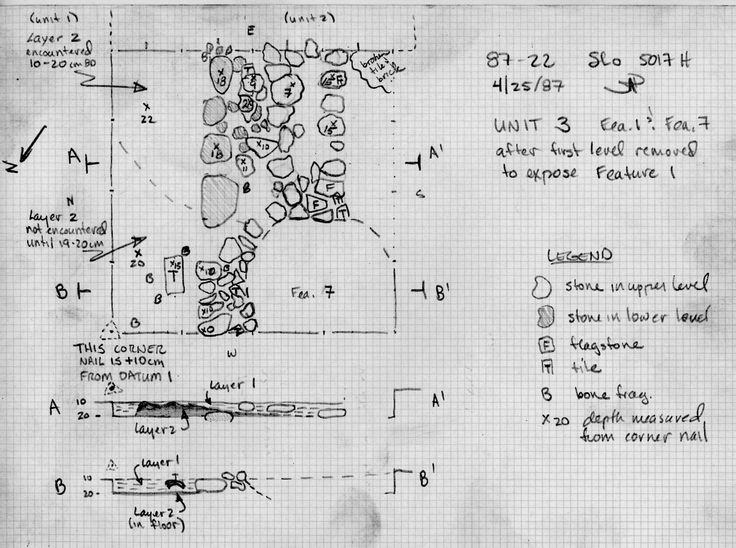 (unit 1)
E
(unit 2)
Layer 2
encountered
10-20cm BD
broken
tile &
brick
87-22 SLO 5017H
4/25/87
UNIT 3 Fea. 1 & Fea. 7
after first level removed
to expose Feature 1
x
22
x
18
T
x
7
F
x
15
x
18
x
10
x
11
B
N
A
A'
S
F
F
T
N
Layer 2
not encountered
until 19-20cm
x
20
B
B
B
B
x15
T
x10
x10
x10
T
B
B'
Fea. 7
B
W
THIS CORNER
NAIL IS +10cm
FROM DATUM 1
LEGEND
stone in upper level
stone in lower level
F flagstone
T tile
B bone frag.
x20 depth measured
from corner nail
A 10
20
Layer 1
Layer 2
A'
B 10
20
Layer 1
T
Layer 2
(in floor)
B'